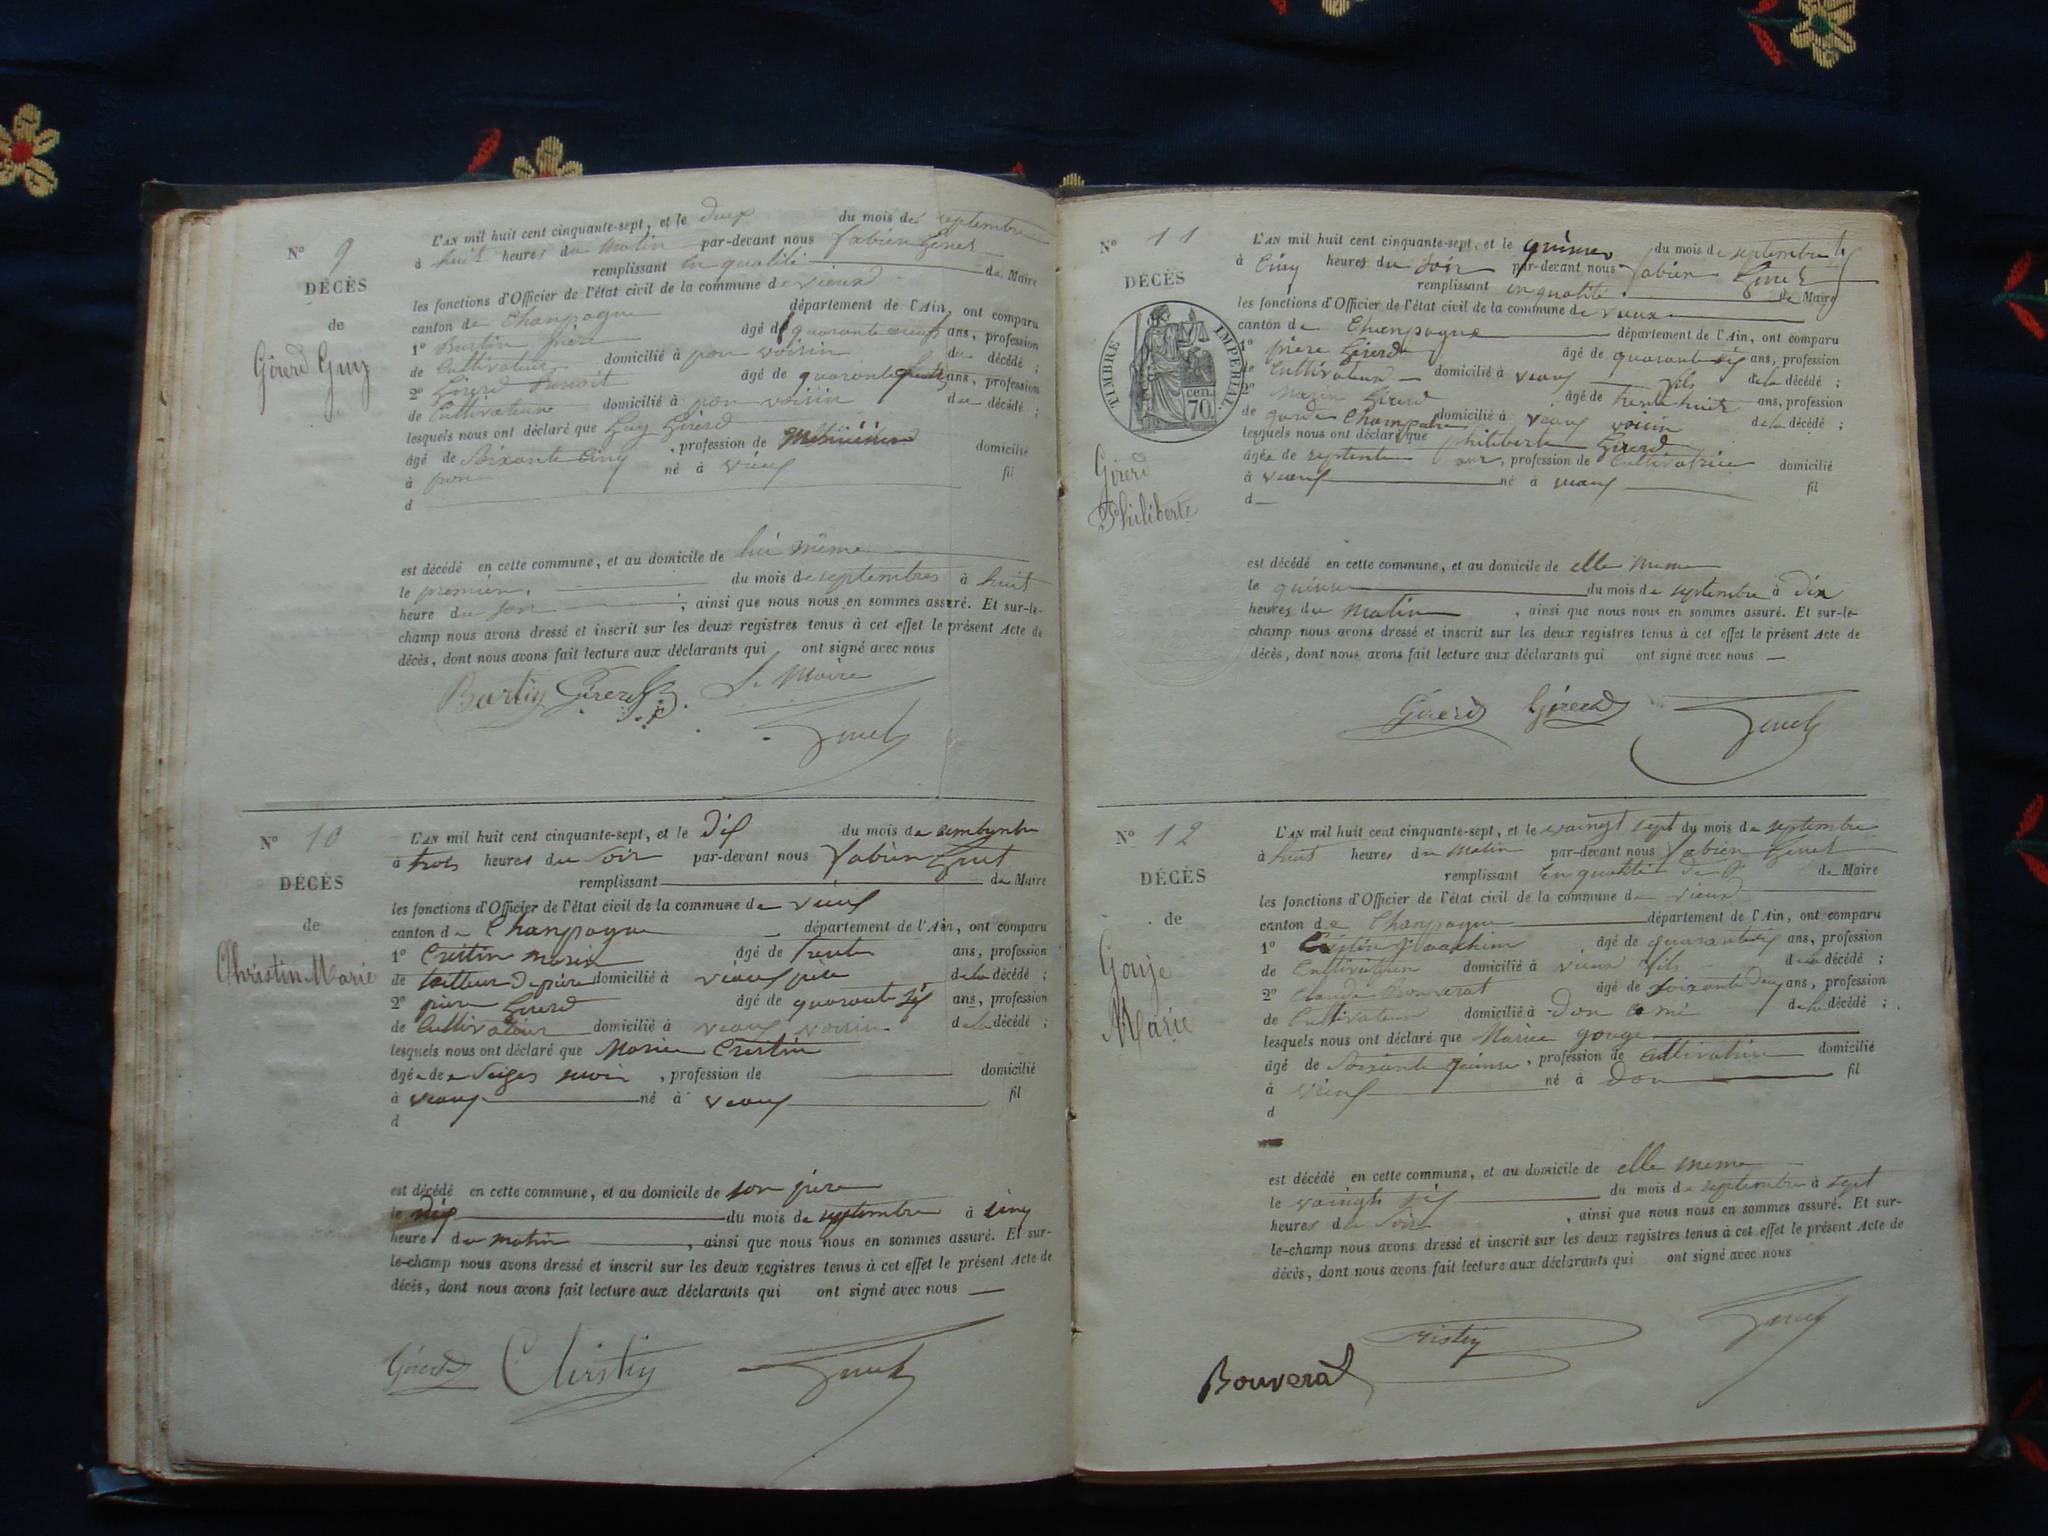 N° 9
DÉCÈS
de
Girerd Guy
L'AN mil huit cent cinquante-sept, et le deux du mois de septembre
à huit heures du matin par-devant nous fabien Genet
remplissant en qualité de Maire
les fonctions d'Officier de l'état civil de la commune de vieux
canton de Chanpagne département de l'Ain, ont comparu
1° Bartin pière âgé de quarante neuf ans, profession
de Cultivateur domicilié à pon voisin du décédé ;
2° Girerd Benoit âgé de quarante ans, profession
de Cultivateur domicilié à pon voisin du décédé ;
lesquels nous ont déclaré que Guy Girerd
âgé de Soixante cinq , profession de domicilié
à pon né à vieux fil
d
est décédé en cette commune, et au domicile de lui même
le premier du mois de septembres à huit
heure du soir ; ainsi que nous nous en sommes assuré. Et sur-le-
champ nous avons dressé et inscrit sur les deux registres tenus à cet effet le présent Acte de
décès, dont nous avons fait lecture aux déclarants qui ont signé avec nous
Bartin Girerd Le Maire
Genet
N° 10
DÉCÈS
de
Christin Marie
L'AN mil huit cent cinquante-sept, et le dix du mois de
à trois heures du soir par-devant nous fabien Genet
remplissant de Maire
les fonctions d'Officier de l'état civil de la commune de vieux
canton de Chanpagne département de l'Ain, ont comparu
1° Cristin marin âgé de trente ans, profession
de tailleur de piere domicilié à vieux père de la décédé ;
2° piere Girerd âgé de quarante six ans, profession
de Cultivateur domicilié à vieux voisin de la décédé ;
lesquels nous ont déclaré que Marie Cristin
âgée de seize mois , profession de domicilié
à vieux né à vieux fil
d
est décédé en cette commune, et au domicile de son père
le dix du mois de septembre à cinq
heure du matin , ainsi que nous nous en sommes assuré. Et sur-
le-champ nous avons dressé et inscrit sur les deux registres tenus à cet effet le présent Acte de
décès, dont nous avons fait lecture aux déclarants qui ont signé avec nous
Girerd Christin Genet
N° 11
DÉCÈS
TIMBRE IMPÉRIAL
70 cen.
Girerd
Philiberte
L'AN mil huit cent cinquante-sept, et le quinse du mois de septembre
à Cinq heures du soir par-devant nous fabien Genet
remplissant en qualité de Maire
les fonctions d'Officier de l'état civil de la commune de vieux
canton de Chanpagne département de l'Ain, ont comparu
1° piere Girerd âgé de quarante six ans, profession
de Cultivateur domicilié à vieux fils de la décédé ;
2° Marin Girerd âgé de trente huit ans, profession
de garde Champetre domicilié à vieux voisin de la décédé ;
lesquels nous ont déclaré que philiberte Girerd
âgée de septente ans, profession de Cultivatrice domicilié
à vieux né à vieux fil
d
est décédé en cette commune, et au domicile de elle meme
le quinse du mois de septembre à dix
heures du matin , ainsi que nous nous en sommes assuré. Et sur-le-
champ nous avons dressé et inscrit sur les deux registres tenus à cet effet le présent Acte de
décès, dont nous avons fait lecture aux déclarants qui ont signé avec nous
Girerd Girerd Genet
N° 12
DÉCÈS
de
Gouje
Marie
L'AN mil huit cent cinquante-sept, et le vaingt sept du mois de septembre
à huit heures du matin par-devant nous fabien Genet
remplissant en qualité de Maire
les fonctions d'Officier de l'état civil de la commune de vieux
canton de Chanpagne département de l'Ain, ont comparu
1° Cristin joachim âgé de quarante six ans, profession
de Cultivateur domicilié à vieux fils de la décédé ;
2° Claude Bouverat âgé de soixante deux ans, profession
de Cultivateur domicilié à don ami de la décédé ;
lesquels nous ont déclaré que Mariee gouge
âgé de Soixante quinse , profession de cultivatrice domicilié
à vieux né à don fil
d
est décédé en cette commune, et au domicile de elle meme
le vaingt six du mois de septembre à sept
heures du soir , ainsi que nous nous en sommes assuré. Et sur-
le-champ nous avons dressé et inscrit sur les deux registres tenus à cet effet le présent Acte de
décès, dont nous avons fait lecture aux déclarants qui ont signé avec nous
Bouverat Cristin Genet